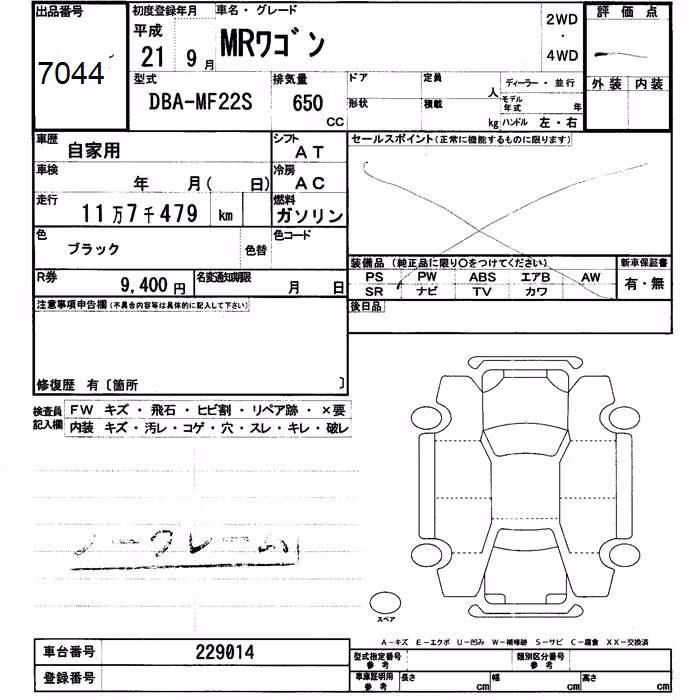 出品番号 初度登録年月 車名・グレード 2WD 評価点
7044 平成 21 9月 MRワゴン ・ 4WD
外装 内装
型式 排気量 ドア 定員 人 ディーラー・並行
DBA-MF22S 650 CC 形状 積載 kg モデル年式 年
ハンドル 左・右
車歴 自家用 シフト AT セールスポイント(正常に機能するものに限ります)
車検 年 月( 日) 冷房 AC
走行 11万7千479 km 燃料 ガソリン
色 ブラック 色替 色コード
装備品 (純正品に限り○をつけてください) 新車保証書
PS PW ABS エアB AW 有・無
SR ナビ TV カワ
R券 9,400円 名変通知期限 月 日
注意事項申告欄(不具合内容等は具体的に記入して下さい) 後日品
修復歴 有〔箇所 〕
検査員 FW キズ・飛石・ヒビ割・リペア跡・×要
記入欄 内装 キズ・汚レ・コゲ・穴・スレ・キレ・破レ
ノークレーム
スペア
A-キズ E-エクボ U-凹み W-補修跡 S-サビ C-腐食 XX-交換済
車台番号 229014 型式指定番号 参考 類別区分番号 参考
登録番号 車庫証明用 参考 長さ cm 幅 cm 高さ cm